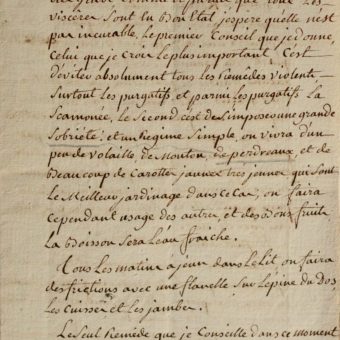 viscères sont en bon Etat, jespere quelle n'est
pas incurable. Le premier Conseil que je donne,
Celui que je Crois le plus important, C'est
D'éviter absolument tous les Remedes violents,
surtout les purgatifs, et parmi les purgatifs La
Scamonée, Le Second c'est de simposer une grande
Sobrieté; et un Regime Simple, on vivra d'un
peu de volaille, de Mouton, de perdreaux, et de
beaucoup de Carottes jaunes tres jeunes qui sont
Le Meilleur jardinage dans ce Cas; on faira
Cependant usage des autres, et des bons fruits
La boisson sera L'eau fraiche.
Tous Les matins à jeun dans Le Lit on faira
des frictions avec une flanelle sur L'épine du Dos
Les Cuisses et Les jambes.
Le seul Remède que je Conseille dans ce moment